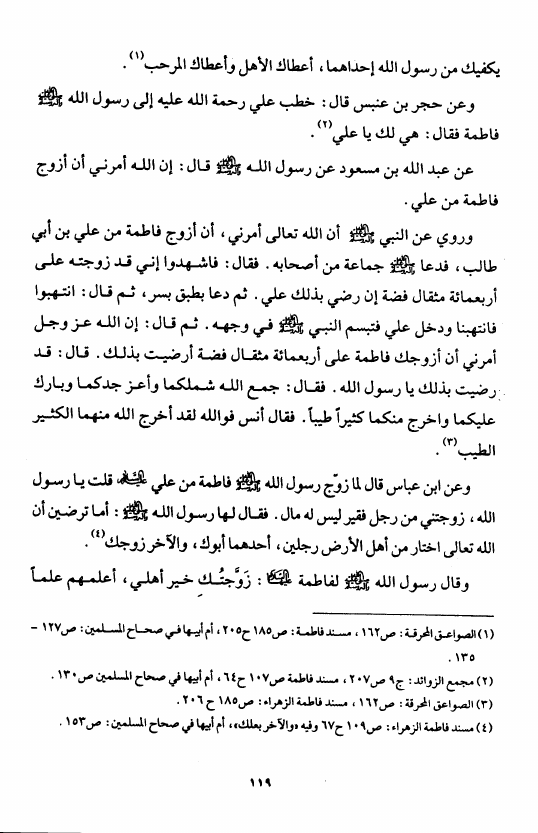 يكفيك من رسول الله إحداهما، أعطاك الأهل وأعطاك المرحب(١).
وعن حجر بن عنبس قال: خطب علي رحمة الله عليه إلى رسول الله ﷺ
فاطمة فقال: هي لك يا علي(٢).
عن عبد الله بن مسعود عن رسول الله ﷺ قال: إن الله أمرني أن أزوج
فاطمة من علي.
وروي عن النبي ﷺ أن الله تعالى أمرني، أن أزوج فاطمة من علي بن أبي
طالب، فدعا ﷺ جماعة من أصحابه. فقال: فاشهدوا إني قد زوجته على
أربعمائة مثقال فضة إن رضي بذلك علي. ثم دعا بطبق بسر، ثم قال: انتهبوا
فانتهبنا ودخل علي فتبسم النبي ﷺ في وجهه. ثم قال: إن الله عز وجل
أمرني أن أزوجك فاطمة على أربعمائة مثقال فضة أرضيت بذلك. قال: قد
رضيت بذلك يا رسول الله. فقال: جمع الله شملكما وأعز جدكما وبارك
عليكما واخرج منكما كثيراً طيباً. فقال أنس فوالله لقد أخرج الله منهما الكثير
الطيب(٣).
وعن ابن عباس قال لما زوّج رسول الله ﷺ فاطمة من علي قلت يا رسول
الله، زوجتني من رجل فقير ليس له مال. فقال لها رسول الله ﷺ: أما ترضين أن
الله تعالى اختار من أهل الأرض رجلين، أحدهما أبوك، والآخر زوجك(٤).
وقال رسول الله ﷺ لفاطمة : زَوَّجتُكِ خير أهلي، أعلمهم علماً
(١) الصواعق المحرقة: ص١٦٢، مسند فاطمة: ص١٨٥ ح٢٠٥، أم أبيها في صحاح المسلمين: ص١٢٧ -
١٣٥.
(٢) مجمع الزوائد: ج٩ ص٢٠٧، مسند فاطمة ص١٠٧ ح٦٤، أم أبيها في صحاح المسلمين ص١٣٠.
(٣) الصواعق المحرقة: ص١٦٢، مسند فاطمة الزهراء: ص١٨٥ ح٢٠٦.
(٤) مسند فاطمة الزهراء: ص١٠٩ ح٦٧ وفيه «والآخر بعلك»، أم أبيها في صحاح المسلمين: ص١٥٣.
١١٩